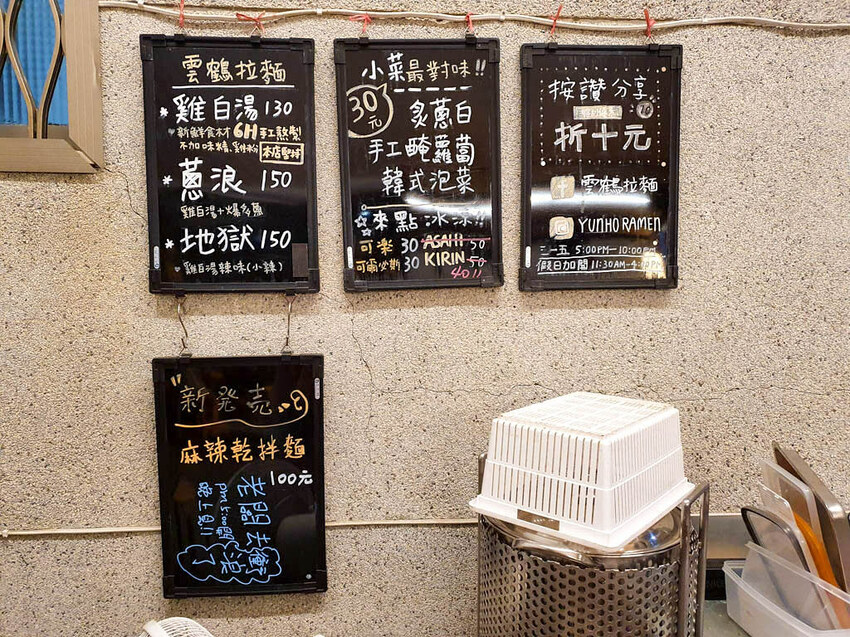 雲鶴拉麵
*雞白湯 130
新鮮食材 6H 手工熬製
不加味精、雞粉 本店堅持
*蔥浪 150
雞白湯+爆多蔥
*地獄 150
雞白湯辣味(小辣)
小菜最對味!!
30元
炙蔥白
手工醃蘿蔔
韓式泡菜
來點冰涼!!
可樂 30 ASAHI 50
可爾必斯 30 KIRIN 50
40!!
按讚分享
折十元
雲鶴拉麵
YUNHO RAMEN
二~五 5:00PM-10:00PM
假日加開 11:30AM-4:00PM
新発売
麻辣乾拌麵
100元
老闆去衝浪了
pm5:00開
晚上見!!